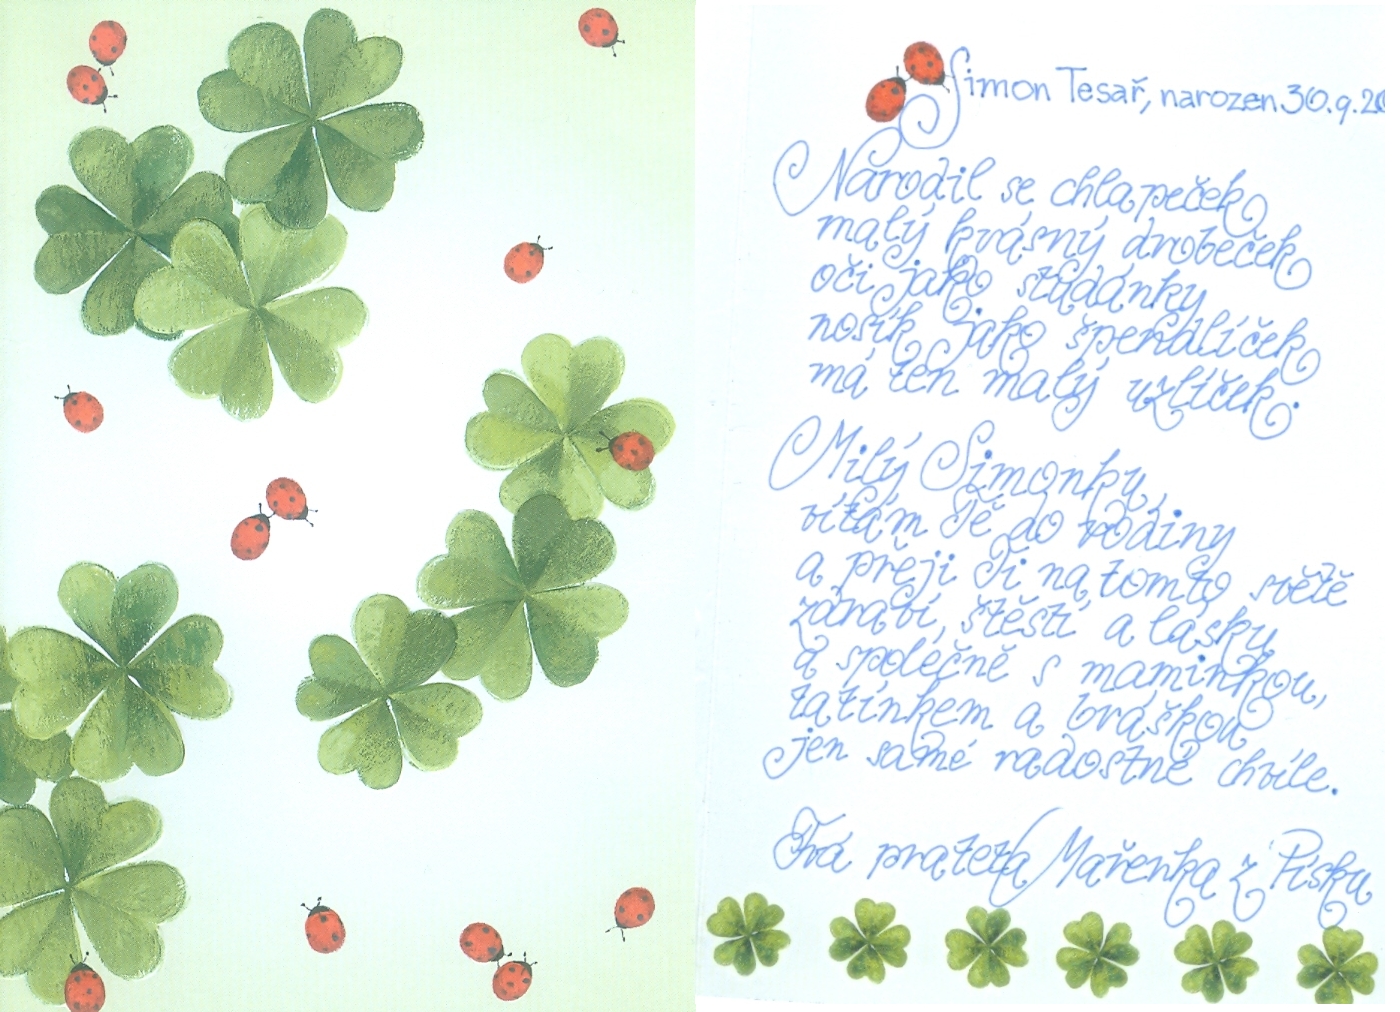 Simon Tesař, narozen 30.9.20
Narodil se chlapeček
malý krásný drobeček
oči jako studánky
nosík jako špendlíček
má ten malý uzlíček.
Milý Simonku,
vítám Tě do rodiny
a přeji Ti na tomto světě
zdraví, štěstí a lásku
a společně s maminkou,
tatínkem a bráškou
jen samé radostné chvíle.
Tvá prateta Mařenka z Písku